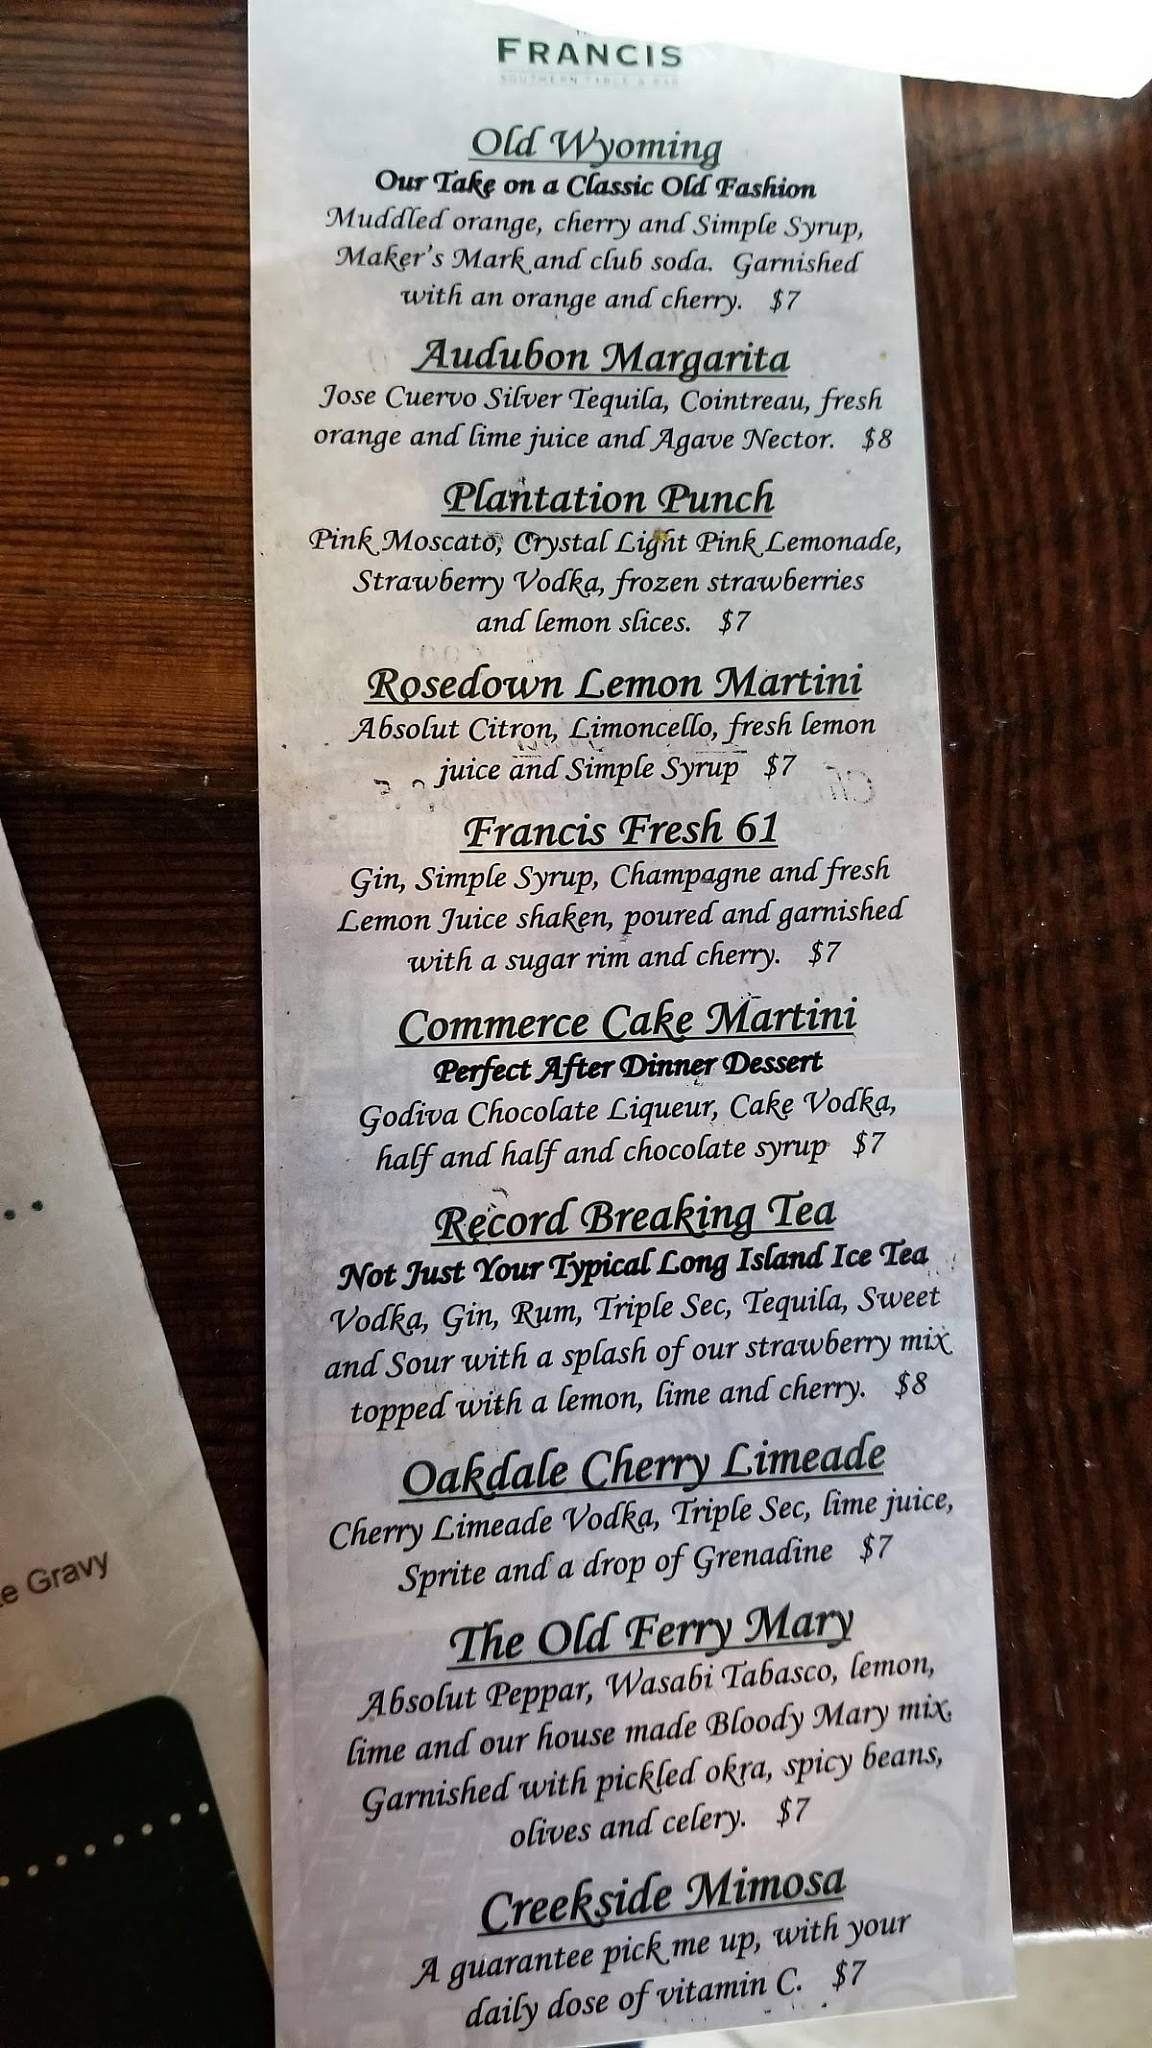 FRANCIS
SOUTHERN TABLE & BAR
Old Wyoming
Our Take on a Classic Old Fashion
Muddled orange, cherry and Simple Syrup,
Maker's Mark and club soda. Garnished
with an orange and cherry. $7
Audubon Margarita
Jose Cuervo Silver Tequila, Cointreau, fresh
orange and lime juice and Agave Nector. $8
Plantation Punch
Pink Moscato, Crystal Light Pink Lemonade,
Strawberry Vodka, frozen strawberries
and lemon slices. $7
Rosedown Lemon Martini
Absolut Citron, Limoncello, fresh lemon
juice and Simple Syrup $7
Francis Fresh 61
Gin, Simple Syrup, Champagne and fresh
Lemon Juice shaken, poured and garnished
with a sugar rim and cherry. $7
Commerce Cake Martini
Perfect After Dinner Dessert
Godiva Chocolate Liqueur, Cake Vodka,
half and half and chocolate syrup $7
Record Breaking Tea
Not Just Your Typical Long Island Ice Tea
Vodka, Gin, Rum, Triple Sec, Tequila, Sweet
and Sour with a splash of our strawberry mix
topped with a lemon, lime and cherry. $8
Oakdale Cherry Limeade
Cherry Limeade Vodka, Triple Sec, lime juice,
Sprite and a drop of Grenadine $7
The Old Ferry Mary
Absolut Peppar, Wasabi Tabasco, lemon,
lime and our house made Bloody Mary mix.
Garnished with pickled okra, spicy beans,
olives and celery. $7
Creekside Mimosa
A guarantee pick me up, with your
daily dose of vitamin C. $7
Gravy